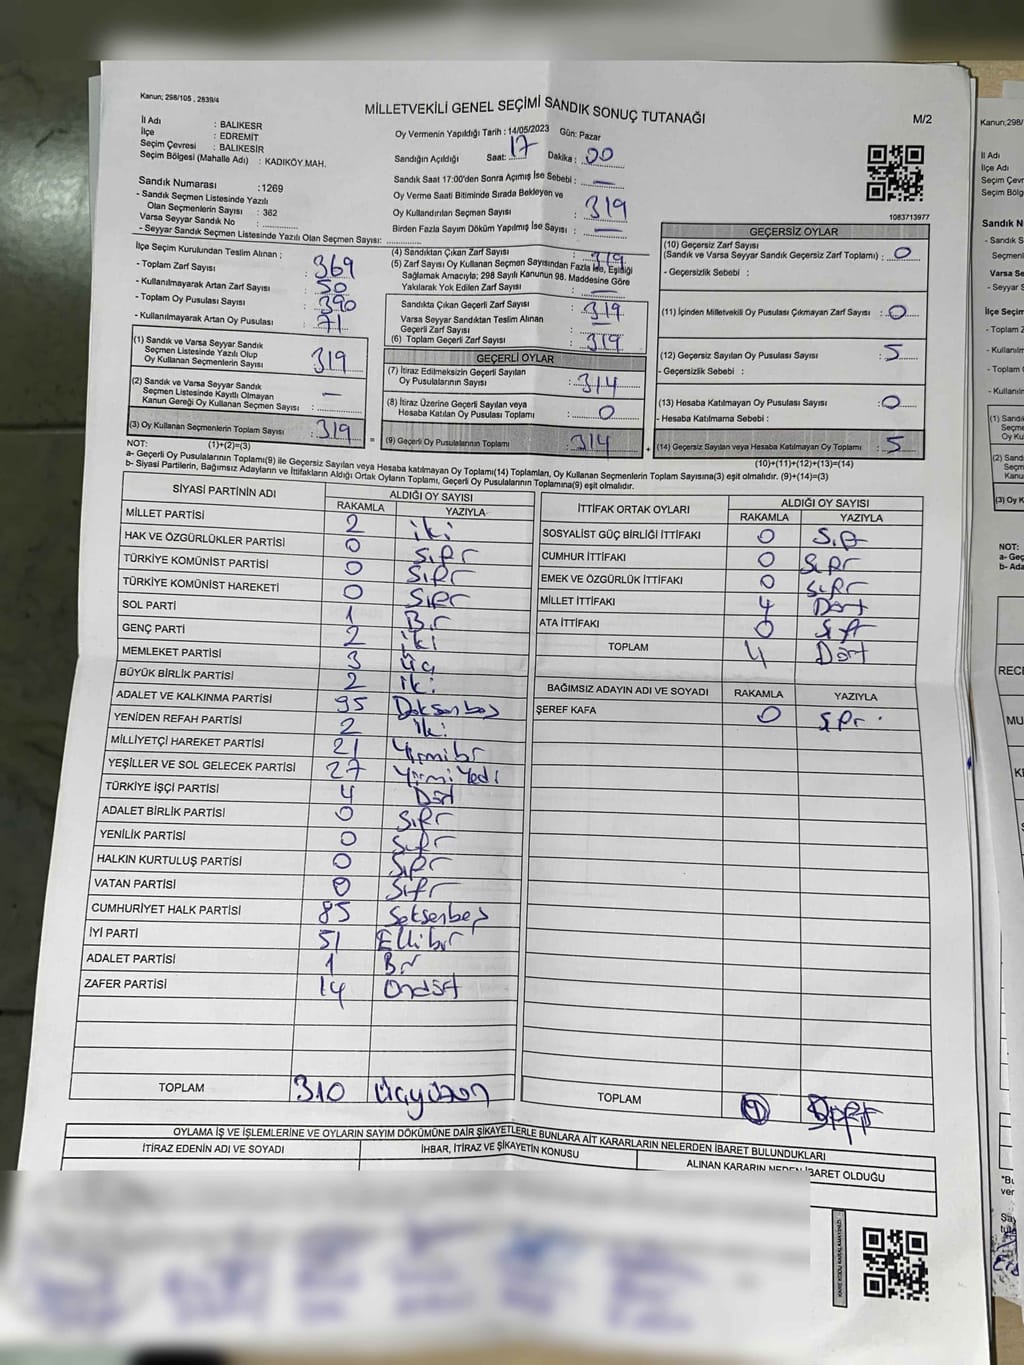 Kanun; 298/105 , 2839/4
MİLLETVEKİLİ GENEL SEÇİMİ SANDIK SONUÇ TUTANAĞI
M/2
İl Adı : BALIKESR
İlçe : EDREMİT
Seçim Çevresi : BALIKESİR
Seçim Bölgesi (Mahalle Adı) : KADIKÖY MAH.
Oy Vermenin Yapıldığı Tarih : 14/05/2023 Gün: Pazar
Sandığın Açıldığı Saat: 17 Dakika : 00
Sandık Saat 17:00'den Sonra Açımış İse Sebebi : —
Oy Verme Saati Bitiminde Sırada Bekleyen ve
Oy Kullandırılan Seçmen Sayısı : 319
Birden Fazla Sayım Döküm Yapılmış İse Sayısı : —
1083713977
Sandık Numarası : 1269
- Sandık Seçmen Listesinde Yazılı
Olan Seçmenlerin Sayısı : 362
Varsa Seyyar Sandık No :
- Seyyar Sandık Seçmen Listesinde Yazılı Olan Seçmen Sayısı:
İlçe Seçim Kurulundan Teslim Alınan ;
- Toplam Zarf Sayısı : 369
- Kullanılmayarak Artan Zarf Sayısı : 50
- Toplam Oy Pusulası Sayısı : 390
- Kullanılmayarak Artan Oy Pusulası : 71
(1) Sandık ve Varsa Seyyar Sandık
Seçmen Listesinde Yazılı Olup
Oy Kullanan Seçmenlerin Sayısı : 319
(2) Sandık ve Varsa Seyyar Sandık
Seçmen Listesinde Kayıtlı Olmayan
Kanun Gereği Oy Kullanan Seçmen Sayısı : —
(3) Oy Kullanan Seçmenlerin Toplam Sayısı : 319
(1)+(2)=(3)
(4) Sandıktan Çıkan Zarf Sayısı : 319
(5) Zarf Sayısı Oy Kullanan Seçmen Sayısından Fazla İse, Eşitliği
Sağlamak Amacıyla; 298 Sayılı Kanunun 98. Maddesine Göre
Yakılarak Yok Edilen Zarf Sayısı : —
Sandıkta Çıkan Geçerli Zarf Sayısı : 319
Varsa Seyyar Sandıktan Teslim Alınan
Geçerli Zarf Sayısı : —
(6) Toplam Geçerli Zarf Sayısı : 319
GEÇERLİ OYLAR
(7) İtiraz Edilmeksizin Geçerli Sayılan
Oy Pusulalarının Sayısı : 314
(8) İtiraz Üzerine Geçerli Sayılan veya
Hesaba Katılan Oy Pusulası Toplamı : 0
= (9) Geçerli Oy Pusulalarının Toplamı : 314
GEÇERSİZ OYLAR
(10) Geçersiz Zarf Sayısı
(Sandık ve Varsa Seyyar Sandık Geçersiz Zarf Toplamı) : 0
- Geçersizlik Sebebi :
(11) İçinden Milletvekili Oy Pusulası Çıkmayan Zarf Sayısı : 0
(12) Geçersiz Sayılan Oy Pusulası Sayısı : 5
- Geçersizlik Sebebi :
(13) Hesaba Katılmayan Oy Pusulası Sayısı : 0
- Hesaba Katılmama Sebebi :
+ (14) Geçersiz Sayılan veya Hesaba Katılmayan Oy Toplamı : 5
(10)+(11)+(12)+(13)=(14)
NOT:
a- Geçerli Oy Pusulalarının Toplamı(9) ile Geçersiz Sayılan veya Hesaba katılmayan Oy Toplamı(14) Toplamları, Oy Kullanan Seçmenlerin Toplam Sayısına(3) eşit olmalıdır. (9)+(14)=(3)
b- Siyasi Partilerin, Bağımsız Adayların ve İttifakların Aldığı Ortak Oyların Toplamı, Geçerli Oy Pusulalarının Toplamına(9) eşit olmalıdır.
SİYASİ PARTİNİN ADI ALDIĞI OY SAYISI
RAKAMLA YAZIYLA
MİLLET PARTİSİ 2 iki
HAK VE ÖZGÜRLÜKLER PARTİSİ 0 sıfır
TÜRKİYE KOMÜNİST PARTİSİ 0 sıfır
TÜRKİYE KOMÜNİST HAREKETİ 0 sıfır
SOL PARTİ 1 Bir
GENÇ PARTİ 2 iki
MEMLEKET PARTİSİ 3 Üç
BÜYÜK BİRLİK PARTİSİ 2 iki
ADALET VE KALKINMA PARTİSİ 95 Doksanbeş
YENİDEN REFAH PARTİSİ 2 iki
MİLLİYETÇİ HAREKET PARTİSİ 21 Yirmibir
YEŞİLLER VE SOL GELECEK PARTİSİ 27 Yirmi Yedi
TÜRKİYE İŞÇİ PARTİSİ 4 Dört
ADALET BİRLİK PARTİSİ 0 sıfır
YENİLİK PARTİSİ 0 sıfır
HALKIN KURTULUŞ PARTİSİ 0 sıfır
VATAN PARTİSİ 0 sıfır
CUMHURİYET HALK PARTİSİ 85 Seksenbeş
İYİ PARTİ 51 Ellibir
ADALET PARTİSİ 1 Bir
ZAFER PARTİSİ 14 Ondört
TOPLAM 310 Üçyüzon
İTTİFAK ORTAK OYLARI ALDIĞI OY SAYISI
RAKAMLA YAZIYLA
SOSYALİST GÜÇ BİRLİĞİ İTTİFAKI 0 sıfır
CUMHUR İTTİFAKI 0 sıfır
EMEK VE ÖZGÜRLÜK İTTİFAKI 0 sıfır
MİLLET İTTİFAKI 4 Dört
ATA İTTİFAKI 0 sıfır
TOPLAM 4 Dört
BAĞIMSIZ ADAYIN ADI VE SOYADI RAKAMLA YAZIYLA
ŞEREF KAFA 0 sıfır
TOPLAM
OYLAMA İŞ VE İŞLEMLERİNE VE OYLARIN SAYIM DÖKÜMÜNE DAİR ŞİKAYETLERLE BUNLARA AİT KARARLARIN NELERDEN İBARET BULUNDUKLARI
İTİRAZ EDENİN ADI VE SOYADI
İHBAR, İTİRAZ VE ŞİKAYETİN KONUSU
ALINAN KARARIN NEDEN İBARET OLDUĞU